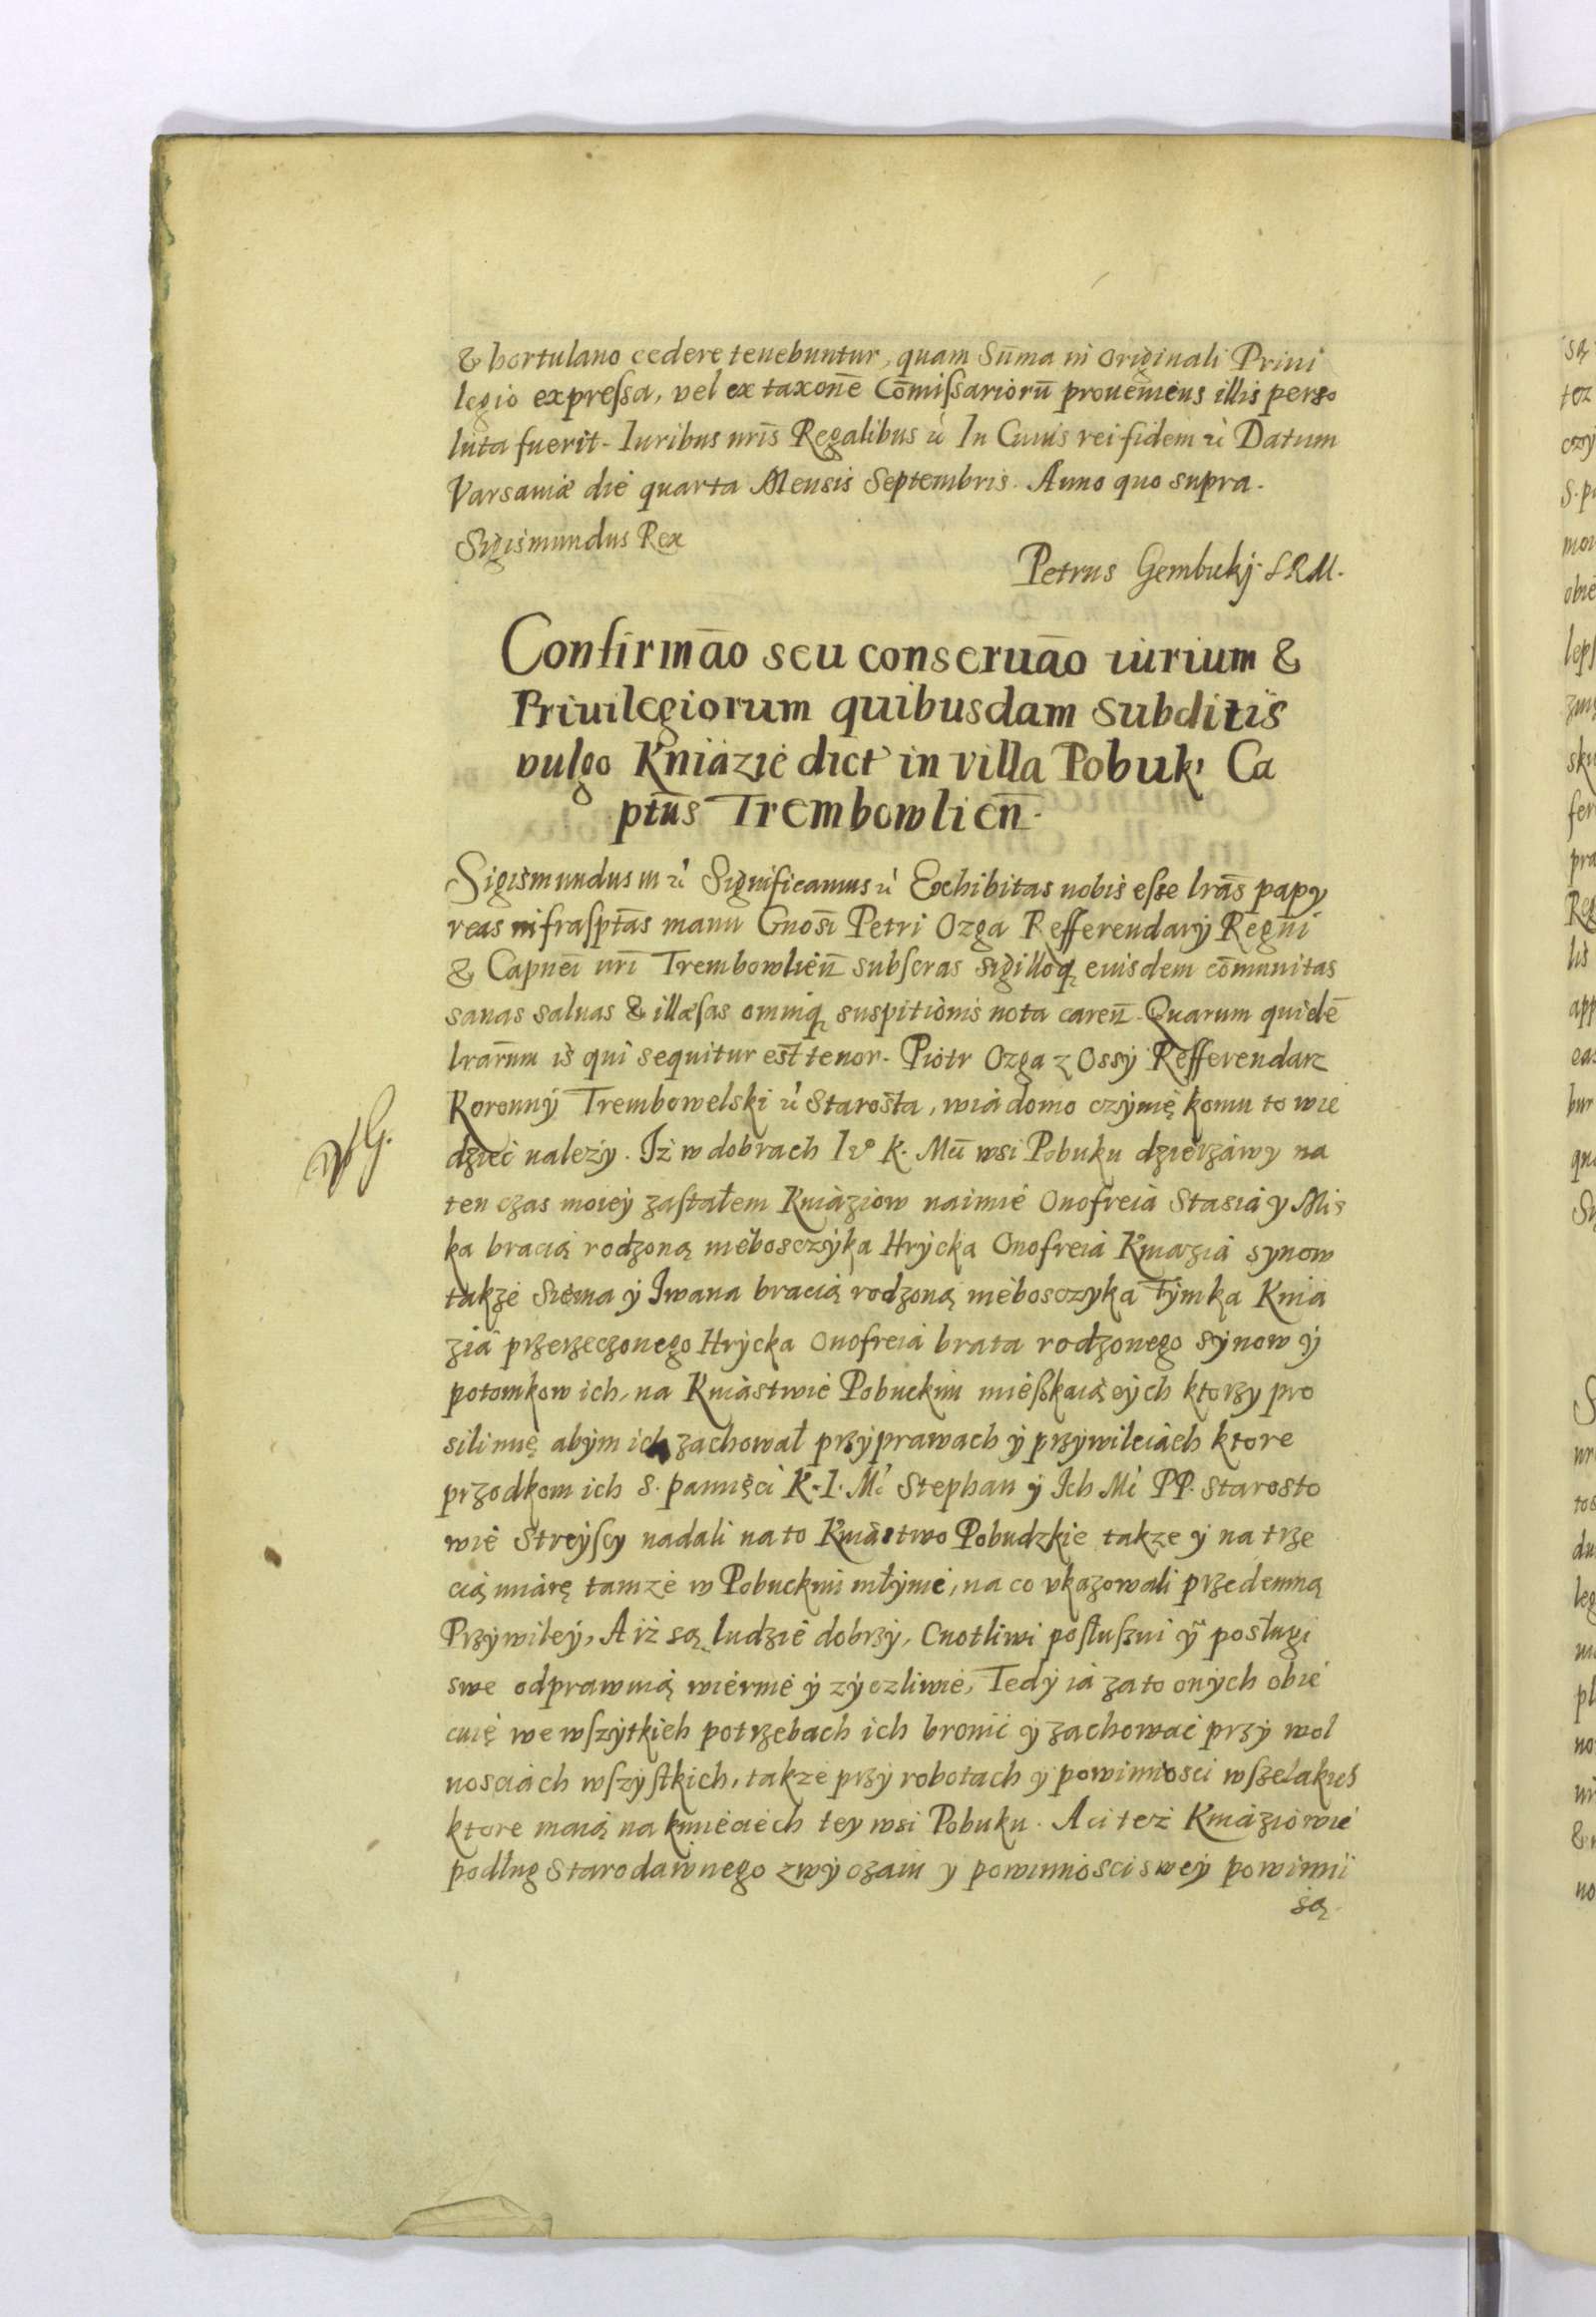 & hortulano cedere tenebuntur, quam Sum̄a in originali Priui
legio expreſsa, vel ex taxon̄e Com̄iſsariorū proueniens illis perso
luta fuerit. Iuribus nr̄is Regalibus ꝛc̀ In Cuius rei fidem ꝛc̀ Datum
Varsauiæ die quarta Mensis Septembris. Anno quo supra.
Sigismundus Rex
Petrus Gembickj. S R M.
Confirmāo seu conseruāo iurium &
Priuilegiorum quibusdam Subditis
vulgo Kniazie dict in villa Pobuk, Ca
ptūs Trembowlien̄.
Sigismundus III ꝛc̀ Significamus ꝛc̀ Exhibitas nobis eſse lrās papy
reas infraſptās manu Gnosi Petri Ozga Refferendarÿ Regni
& Capnei nr̄i Trembowlien̄ subſcras sigilloq̨ eiusdem com̄unitas
sanas saluas & illæſas omniq̨ suspitionis nota caren̄. Quarum quidē
lrarum is qui sequitur est tenor. Piotr Ozga z Ossÿ Refferendarz
Koronnÿ Trembowelski ꝛc̀ Starosta, wiadomo czÿnię komu to wie
dzieć nalezÿ. Iż w dobrach Iᵉ° K. Mci wsi Pobuku dzierzáwy na
ten czas moieÿ zaſtałem Kniaziow naimie Onofreia Stasia y Mis
ka bracią rodzoną nieboſczÿka Hrÿcka Onofreia Kniazia synow
takze Siema ÿ Iwana bracią rodzoną nieboſczyka Tÿmka Knia
zia przerzeczonego Hrÿcka Onofreia brata rodzonego sÿnow ÿ
potomkow ich, na Kniastwie Pobuckim mieſzkaiącÿch ktorzy pro
sili mię abÿm ich zachował przÿ prawach ÿ przÿwileiach ktore
przodkom ich S. pamięci K. I. Mć Stephan ÿ Ich Mć PP. Starosto
wie Streÿſcy nadali na to Kniastwo Pobudzkie takze ÿ na trze
cią miarę tamze w Pobuckim młÿnie, na co vkazowali przedemną
Przÿwileÿ, A iż są ludzie dobrzÿ, Cnotliwi poſłuſzni ÿ posługi
swe odprawuią wiernie ÿ zÿczliwie, Tedÿ ia za to onÿch obie
cuię we wſzÿtkich potrzebach ich bronić ÿ zachować przÿ wol
nosciach wſzÿſtkich, takze przÿ robotach ÿ powinnosci wſzelakich
ktore maią na kmieciech tey wsi Pobuku. A ci też Kniaziowie
podług Starodawnego zwÿczaiu y powinnosci sweÿ powinni
są.